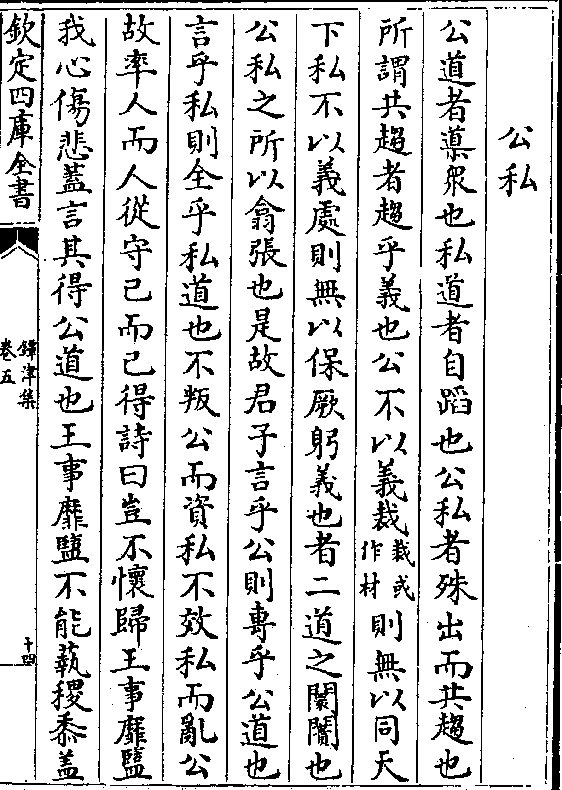 公私
公道者導衆也私道者自蹈也公私者殊出而共趨也
所謂共趨者趨乎義也公不以義裁裁或作材則無以同天
下私不以義處則無以保厥躬義也者二道之闔闢也
公私之所以翕張也是故君子言乎公則專乎公道也
言乎私則全乎私道也不叛公而資私不效私而亂公
故率人而人從守己而己得詩曰豈不懷歸王事靡盬
我心傷悲蓋言其得公道也王事靡盬不能蓺稷黍蓋
欽定四庫全書
鐔津集
卷五
十四